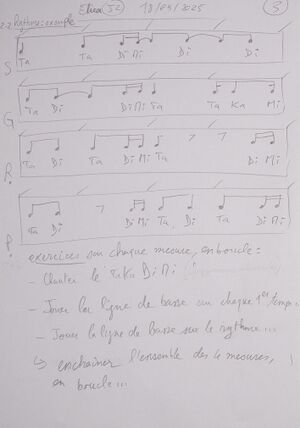 Elisa (J2) 18/09/2025 (3)
2.2 Rythmes: exemple
S Ta Ta Di Mi Di Ta Di
G Ta Di Di Mi Ta Ta Ka Mi
R. Ta Di Ta Di Mi Ta Di Mi
P. Ta Di Di Mi Ta Di Ta Di Mi
exercices sur chaque mesure, en boucle :
- Chanter le TaKa DiMi
- Jouer la ligne de basse sur chaque 1er temps
- Jouer la ligne de basse sur le rythme...
↳ enchaîner l'ensemble des 4 mesures,
en boucle...